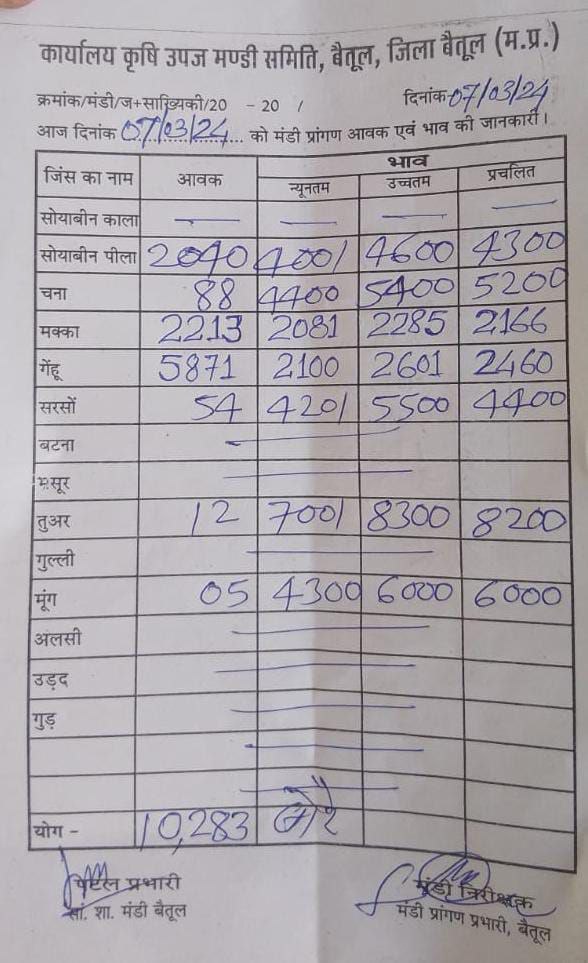 कार्यालय कृषि उपज मण्डी समिति, बैतूल, जिला बैतूल (म.प्र.)
क्रमांक/मंडी/ज+साख्यिकी/20 - 20 / दिनांक 07/03/24
आज दिनांक 07/03/24 को मंडी प्रांगण आवक एवं भाव की जानकारी।
जिंस का नाम आवक भाव
न्यूनतम उच्चतम प्रचलित
सोयाबीन काला — — — —
सोयाबीन पीला 2040 4001 4600 4300
चना 88 4400 5400 5200
मक्का 2213 2081 2285 2166
गेंहू 5871 2100 2601 2460
सरसों 54 4201 5500 4400
बटना —
मसूर —
तुअर 12 7001 8300 8200
गुल्ली —
मूंग 05 4300 6000 6000
अलसी —
उड़द —
गुड़ —
—
—
योग - 10,283 बोरे
पटल प्रभारी मंडी निरीक्षक
सां. शा. मंडी बैतूल मंडी प्रांगण प्रभारी, बैतूल